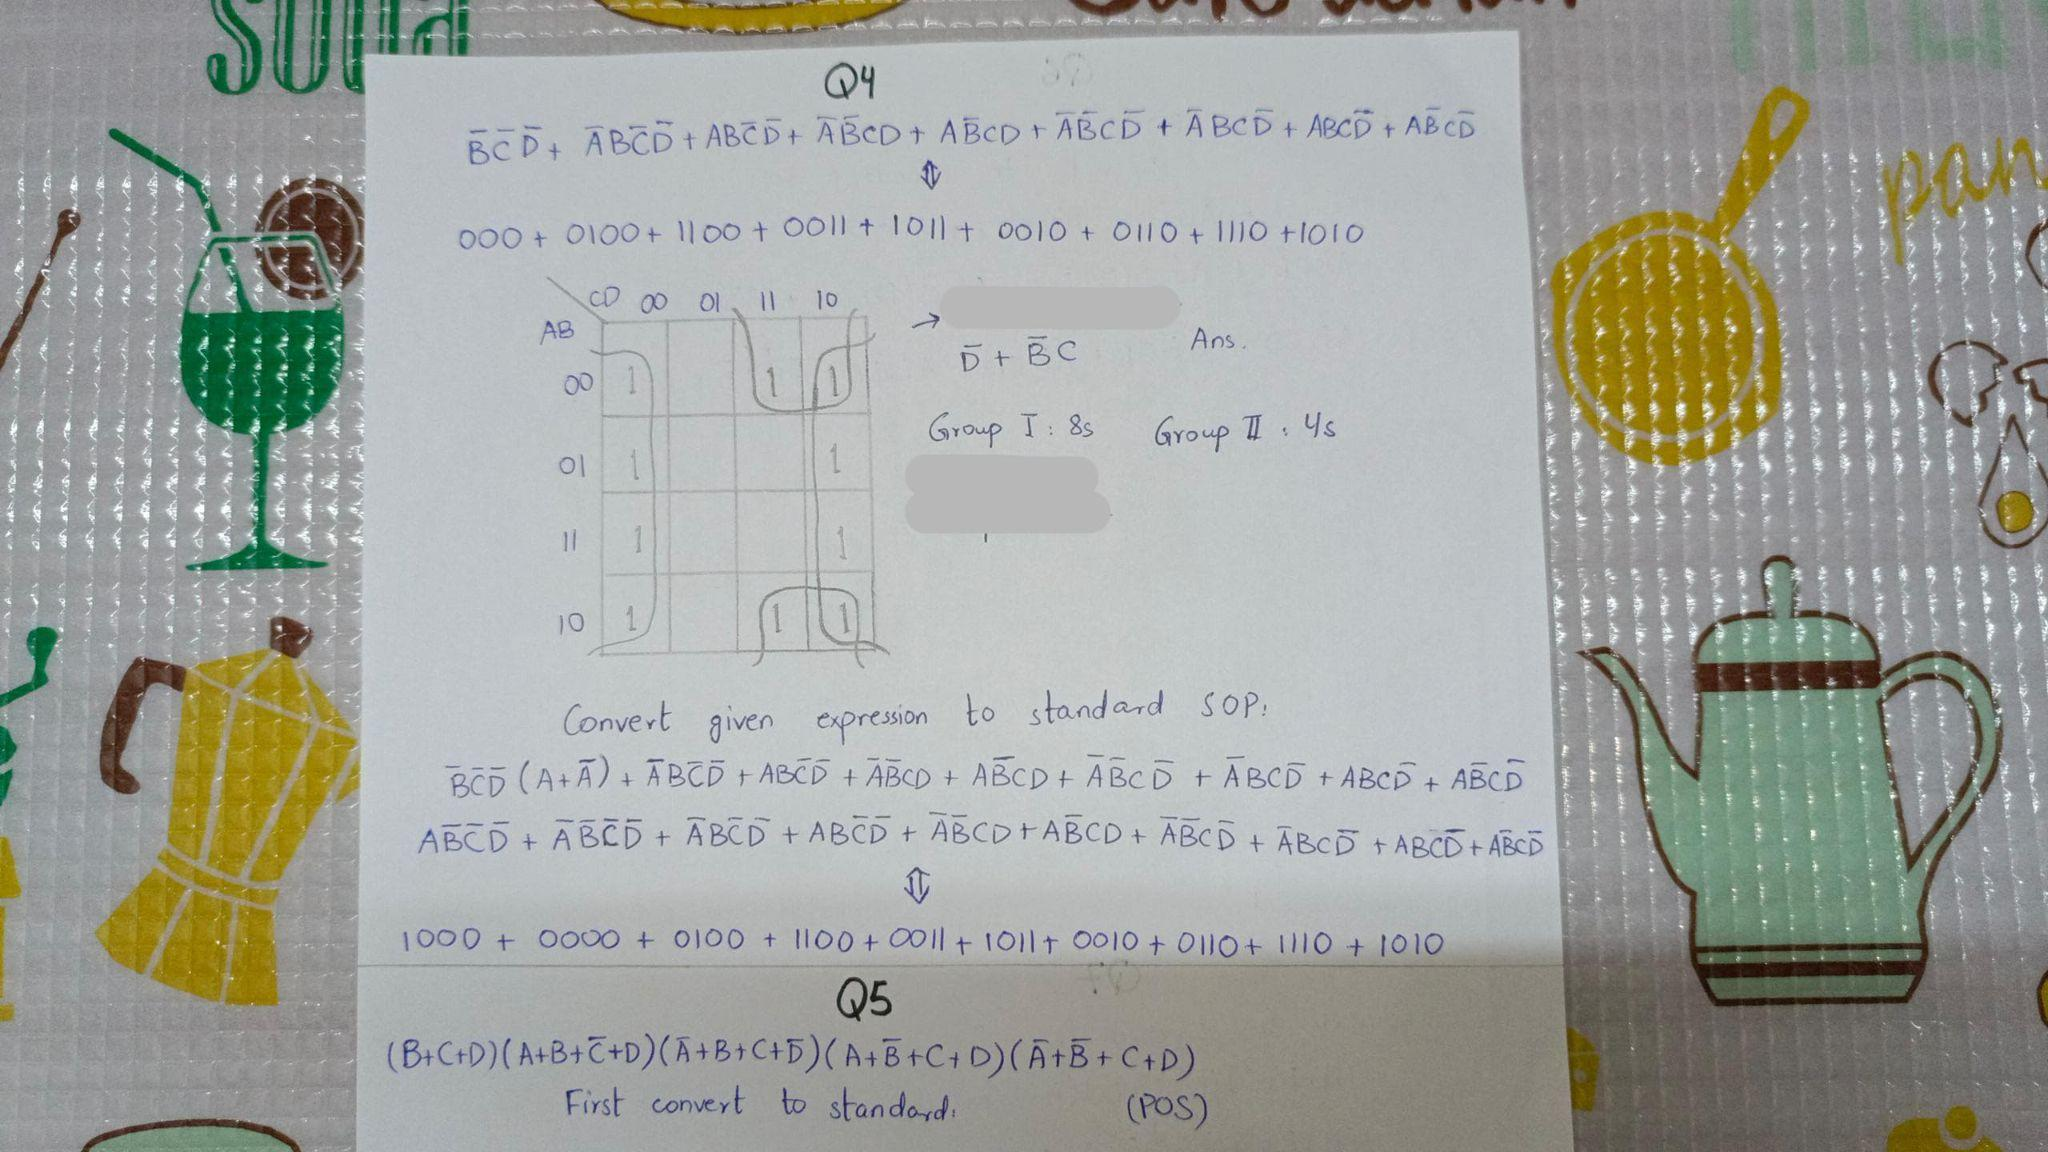 SODA
pan
Q4
B̅ C̅ D̅ + A̅ B C̅ D̅ + A B C̅ D̅ + A̅ B̅ C D + A B̅ C D + A̅ B̅ C D̅ + A̅ B C D̅ + A B C D̅ + A B̅ C D̅
⇕
000 + 0100 + 1100 + 0011 + 1011 + 0010 + 0110 + 1110 + 1010
CD 00 01 11 10
AB
→
D̅ + B̅ C Ans.
00 1 1 1
Group I : 8s Group II : 4s
01 1 1
11 1 1
10 1 1 1
Convert given expression to standard SOP:
B̅ C̅ D̅ (A + A̅) + A̅ B C̅ D̅ + A B C̅ D̅ + A̅ B̅ C D + A B̅ C D + A̅ B̅ C D̅ + A̅ B C D̅ + A B C D̅ + A B̅ C D̅
A B̅ C̅ D̅ + A̅ B̅ C̅ D̅ + A̅ B C̅ D̅ + A B C̅ D̅ + A̅ B̅ C D + A B̅ C D + A̅ B̅ C D̅ + A̅ B C D̅ + A B C D̅ + A B̅ C D̅
⇕
1000 + 0000 + 0100 + 1100 + 0011 + 1011 + 0010 + 0110 + 1110 + 1010
Q5
(B+C+D)(A+B+C̅+D)(A̅+B+C+D̅)(A+B̅+C+D)(A̅+B̅+C+D)
First convert to standard. (POS)